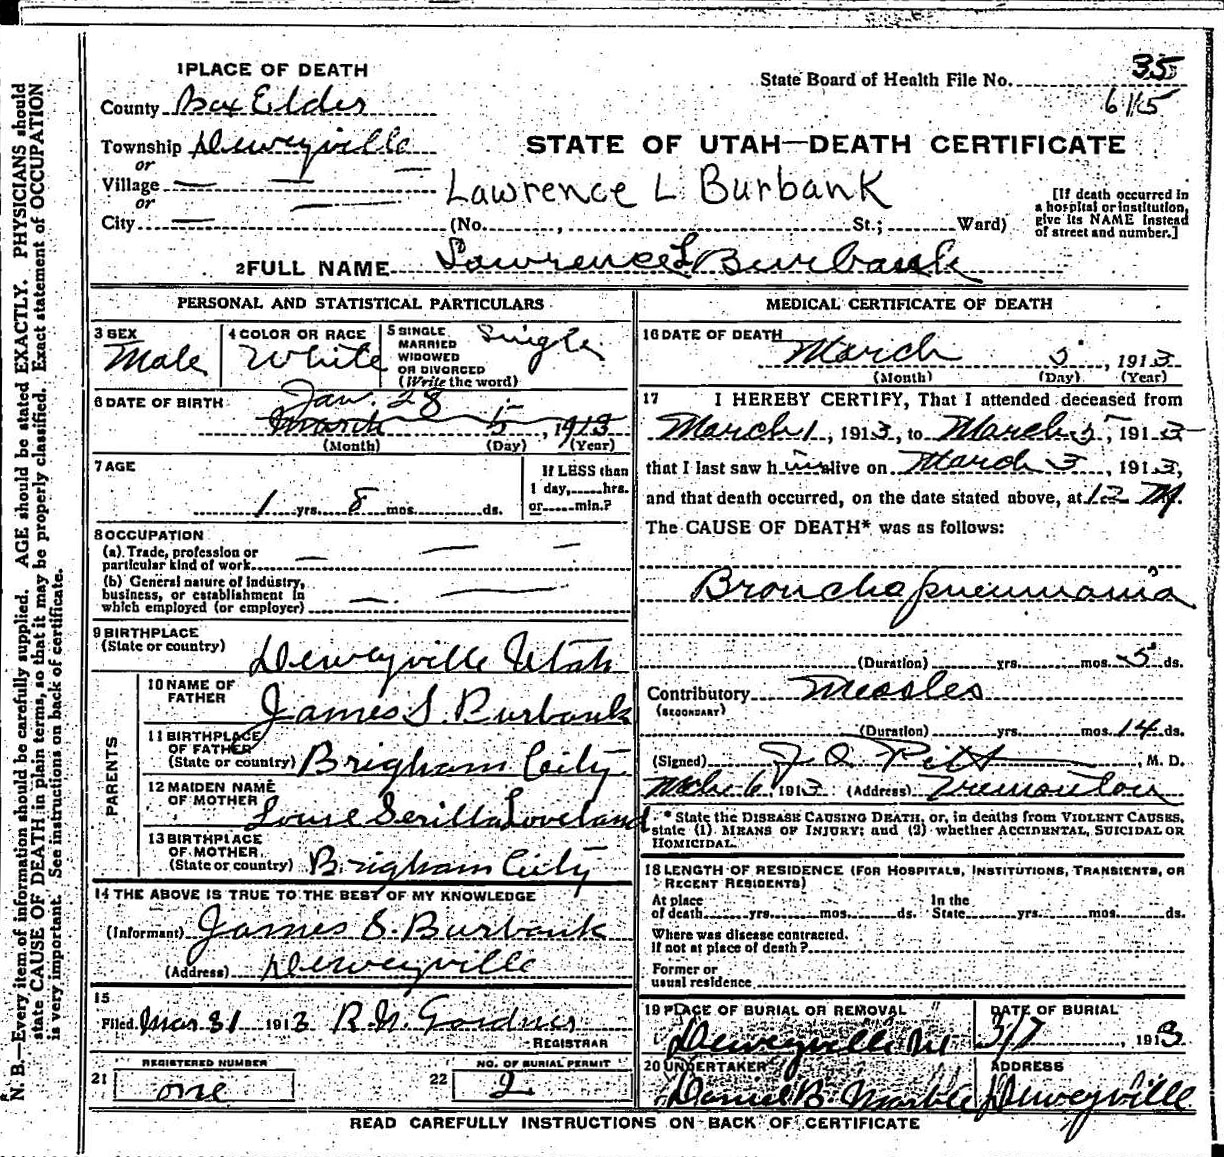 1 PLACE OF DEATH
State Board of Health File No. 35
615
County Box Elder
Township Deweyville
STATE OF UTAH—DEATH CERTIFICATE
or
Village — — —
Lawrence L Burbank
[If death occurred in a hospital or institution, give its NAME instead of street and number.]
or
City — —
(No. , St.; Ward)
2 FULL NAME Lawrence L Burbank
PERSONAL AND STATISTICAL PARTICULARS
3 SEX Male
4 COLOR OR RACE White
5 SINGLE MARRIED WIDOWED OR DIVORCED (Write the word) Single
6 DATE OF BIRTH Jan. 28
March 5, 1913
(Month) (Day) (Year)
7 AGE
If LESS than 1 day, hrs. or min.?
1 yrs. 8 mos. ds.
8 OCCUPATION
(a) Trade, profession or particular kind of work — — —
(b) General nature of industry, business, or establishment in which employed (or employer) — —
9 BIRTHPLACE (State or country) Deweyville Utah
PARENTS
10 NAME OF FATHER James S. Burbank
11 BIRTHPLACE OF FATHER (State or country) Brigham City
12 MAIDEN NAME OF MOTHER Loveland
13 BIRTHPLACE OF MOTHER (State or country) Brigham City
14 THE ABOVE IS TRUE TO THE BEST OF MY KNOWLEDGE
(Informant) James S. Burbank
(Address) Deweyville
15
Filed Mar 31 1913 Gardner
REGISTRAR
21 REGISTERED NUMBER one
22 NO. OF BURIAL PERMIT 2
MEDICAL CERTIFICATE OF DEATH
16 DATE OF DEATH
March 5, 1913
(Month) (Day) (Year)
17 I HEREBY CERTIFY, That I attended deceased from
March 1, 1913, to March 5, 1913
that I last saw him alive on March 3, 1913,
and that death occurred, on the date stated above, at 12 M.
The CAUSE OF DEATH* was as follows:
Broncho pneumonia
(Duration) yrs. mos. 5 ds.
Contributory Measles
(SECONDARY)
(Duration) yrs. mos. 14 ds.
(Signed) Pitt, M. D.
6 1913 (Address) Tremonton
* State the DISEASE CAUSING DEATH, or, in deaths from VIOLENT CAUSES, state (1) MEANS OF INJURY; and (2) whether ACCIDENTAL, SUICIDAL OR HOMICIDAL.
18 LENGTH OF RESIDENCE (FOR HOSPITALS, INSTITUTIONS, TRANSIENTS, OR RECENT RESIDENTS)
At place of death yrs. mos. ds. In the State yrs. mos. ds.
Where was disease contracted, if not at place of death?
Former or usual residence
19 PLACE OF BURIAL OR REMOVAL Deweyville
DATE OF BURIAL 3/7, 1913
20 UNDERTAKER Daniel B. Marble
ADDRESS Deweyville
READ CAREFULLY INSTRUCTIONS ON BACK OF CERTIFICATE
N. B.—Every item of information should be carefully supplied. AGE should be stated EXACTLY. PHYSICIANS should
state CAUSE OF DEATH in plain terms, so that it may be properly classified. Exact statement of OCCUPATION
is very important. See instructions on back of certificate.